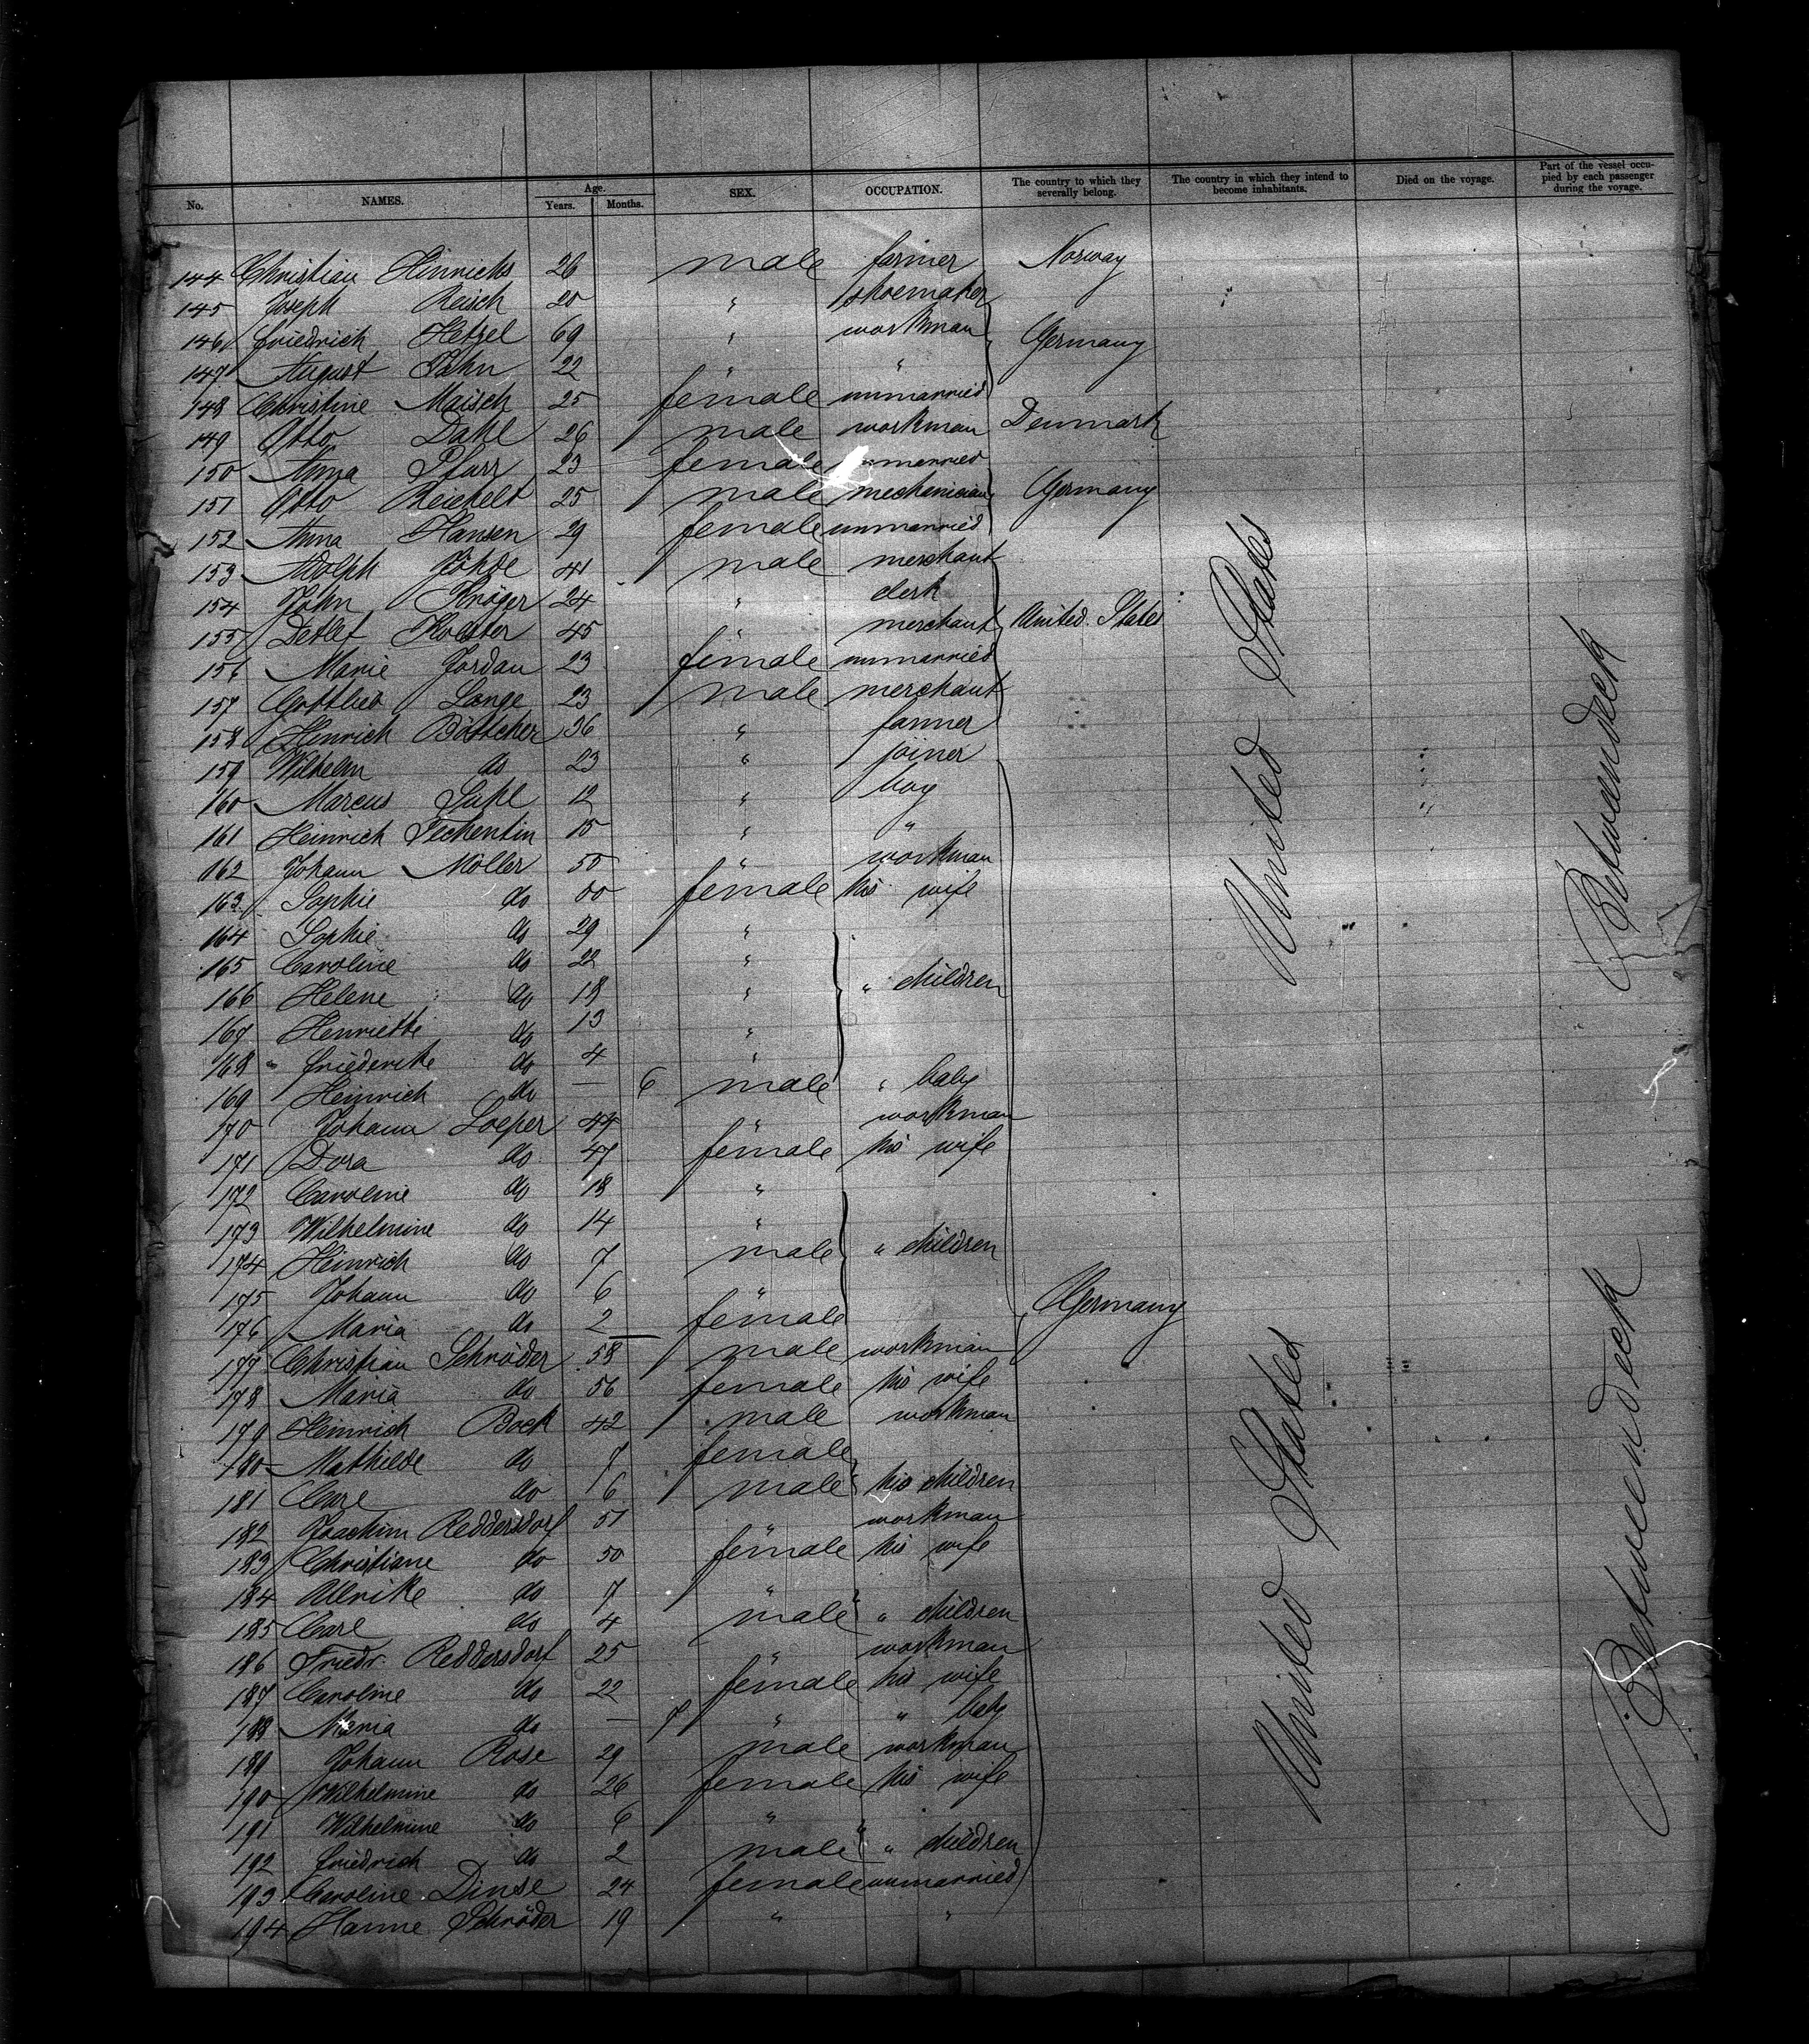 No. NAMES. Age. Years. Months. SEX. OCCUPATION. The country to which they severally belong. The country in which they intend to become inhabitants. Died on the voyage. Part of the vessel occupied by each passenger during the voyage.
144 Christian Hinrichs 26 male farmer Norway
145 Joseph Reisch 20 " shoemaker
146 Friedrich Hetzel 69 " workman Germany
147 August Jahn 22 " "
148 Christine Maisch 25 female unmarried
149 Otto Dahl 26 male workman Denmark
150 Anna Pfarr 23 female unmarried
151 Otto Reichelt 25 male mechanician Germany
152 Anna Hansen 29 female unmarried
153 Adolph Jöhde 41 male merchant
154 John Kröger 24 " clerk
155 Detlef Holster 45 merchant United States
156 Marie Jordan 23 female unmarried
157 Gottlieb Lange 23 male merchant
158 Heinrich Böttcher 36 " farmer
159 Wilhelm do 23 " joiner
160 Marcus Suhl 12 " boy
161 Heinrich Techentin 15 " "
162 Johann Möller 55 " workman
163 Sophie do female his wife
164 Sophie do 29 "
165 Caroline do 22 "
166 Helene do 18 " " children
167 Henriette do 13 "
168 Friederike do 4 "
169 Heinrich do — 6 male " baby
170 Johann Loeper 44 " workman
171 Dora do 47 female his wife
172 Caroline do 18 "
173 Wilhelmine do 14 "
174 Heinrich do 7 male " children
175 Johann do 6 "
176 Maria do 2 female Germany
177 Christian Schröder 58 male workman
178 Maria do 56 female his wife
179 Heinrich Bock 42 male workman
180 Mathilde do 7 female
181 Carl do 6 male his children
182 Joachim Reddersdorf 51 " workman
183 Christiane do 50 female his wife
184 Ullrike do 7 "
185 Carl do 4 male " children
186 Friedr. Reddersdorf 25 " workman
187 Caroline do 22 female his wife
188 Maria do — 9 " " baby
189 Johann Rose 29 male workman
190 Wilhelmine do 26 female his wife
191 Wilhelmine do 6 "
192 Friedrich do 2 male " children
193 Caroline Dinse 24 female unmarried
194 Hanne Schröder 19 " "
United States
United States
Betweendeck
Betweendeck